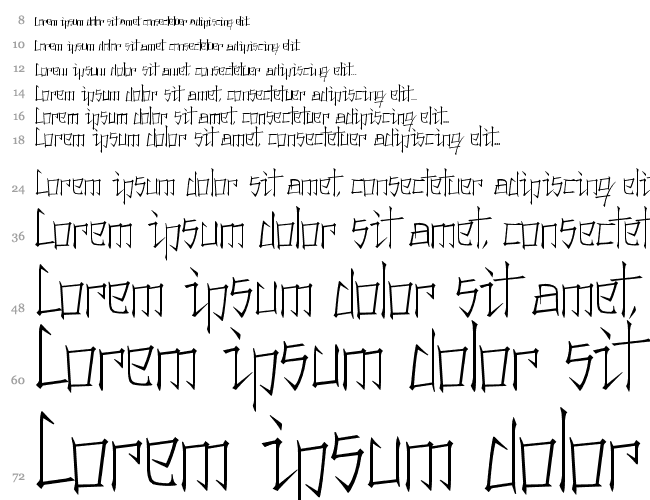 8 Lorem ipsum dolor sit amet consectetuer adipiscing elit.
10 Lorem ipsum dolor sit amet consectetuer adipiscing elit.
12 Lorem ipsum dolor sit amet, consectetuer adipiscing elit...
14 Lorem ipsum dolor sit amet, consectetuer adipiscing elit...
16 Lorem ipsum dolor sit amet, consectetuer adipiscing elit...
18 Lorem ipsum dolor sit amet, consectetuer adipiscing elit...
24 Lorem ipsum dolor sit amet, consectetuer adipiscing eli
36 Lorem ipsum dolor sit amet, consectet
48 Lorem ipsum dolor sit amet,
60 Lorem ipsum dolor sit
72 Lorem ipsum dolor